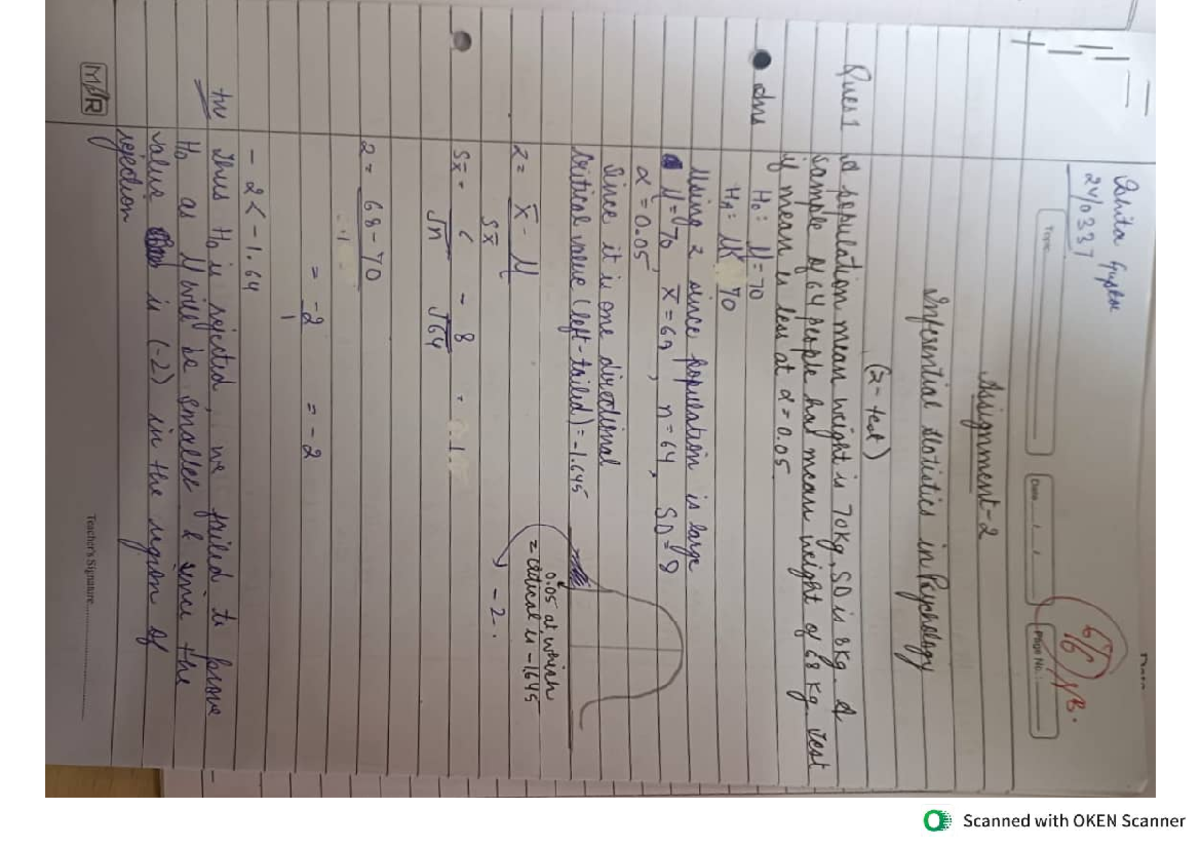 24/0337
Topic
Date
Page No.:
Assignment-2
Inferential Statistics in Psychology
(z-test)
Ques 1 A population mean weight is 70Kg, SD is 8Kg. A
sample of 64 people has mean weight of 68 Kg. Test
if mean is less at α = 0.05
Ans H₀: μ=70
Hₐ: μ< 70
Using z since population is large
μ=70, x̄=69, n=64, SD=8
α=0.05
Since it is one directional
Critical value (left-tailed)=-1.645
0.05 at which
= critical is -1.645
z= x̄ - μ / Sx̄
-2.
Sx̄ = 6/√n - 8/√64 = 1
z= 68-70 / 1
= -2/1 = -2
-2<-1.64
Thus H₀ is rejected, we failed to prove
H₀ as μ will be smaller & since the
value is (-2) in the region of
rejection
M R
Teacher's Signature
Scanned with OKEN Scanner